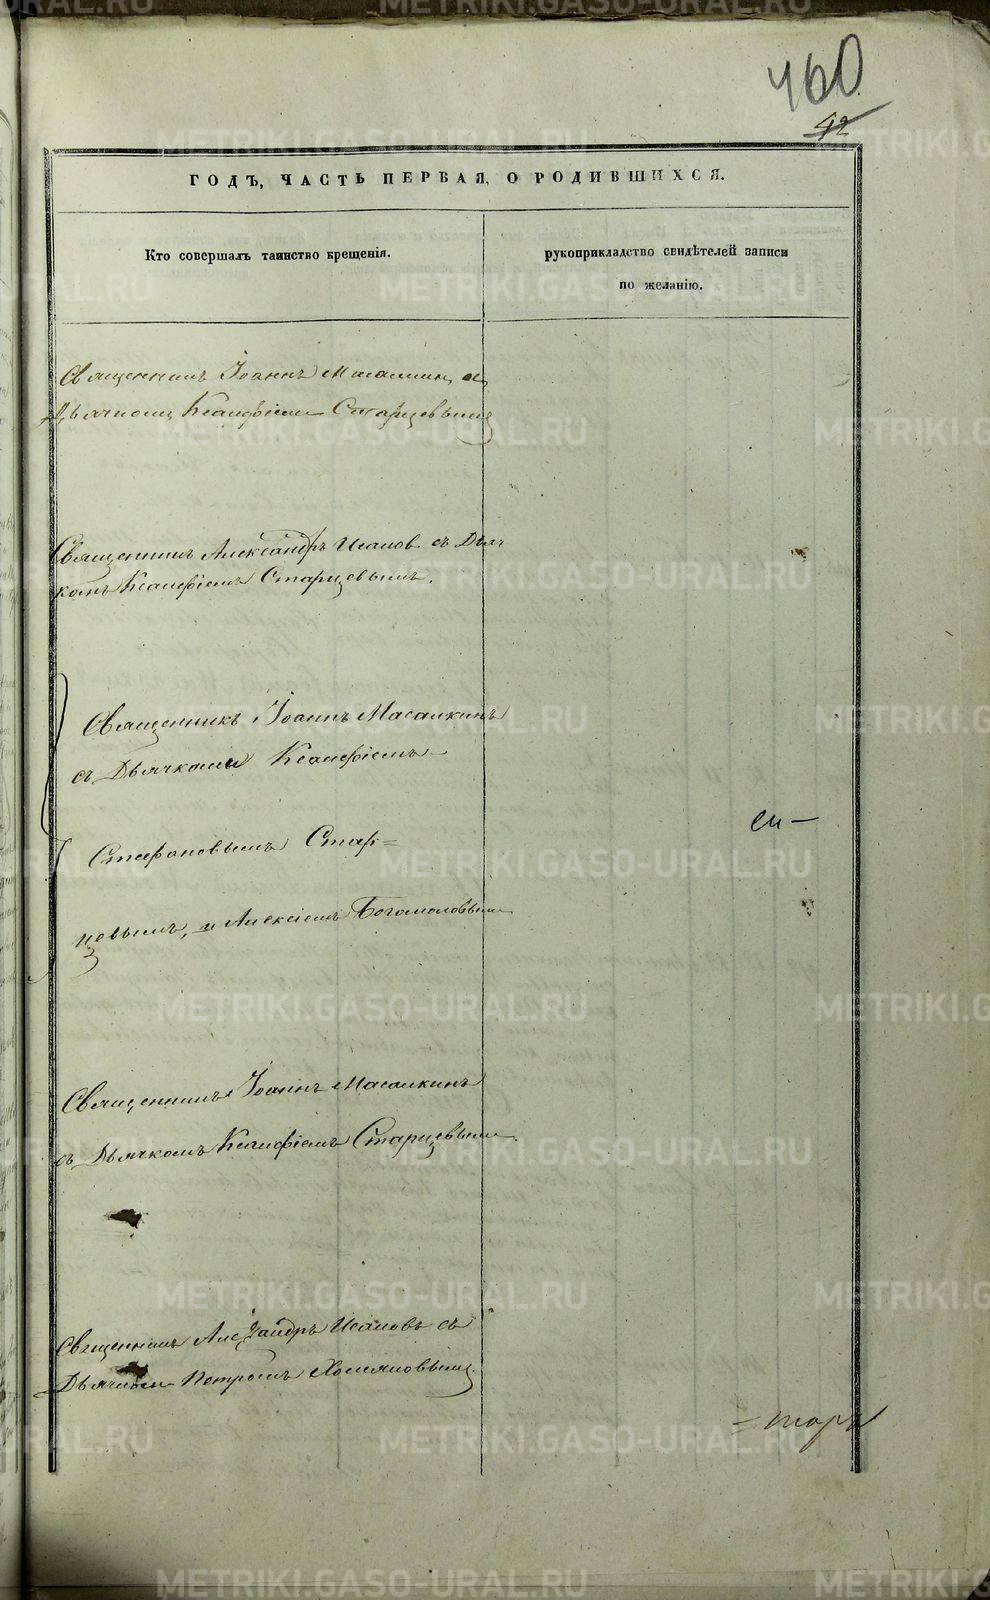 460
42
ГОДЪ, ЧАСТЬ ПЕРВАЯ, О РОДИВШИХСЯ.
Кто совершалъ таинство крещенія.
рукоприкладство свидѣтелей записи
по желанію.
Священникъ Іоаннъ Масалкин съ
Дьячкомъ Ксанфіемъ Старцевымъ
Священникъ Александръ Исаков съ Дьяч
комъ Ксанфіемъ Старцевымъ.
Священникъ Іоаннъ Масалкинъ
съ Дьячками Ксанфіемъ
Стефановымъ Стар=
цевымъ, и Алексіемъ Богомоловым
Священникъ Іоаннъ Масалкинъ
съ Дьячкомъ Ксанфіемъ Старцевым.
Священникъ Александръ Исаковъ съ
Дьячком Петромъ Хомяковымъ.
METRIKI.GASO-URAL.RU